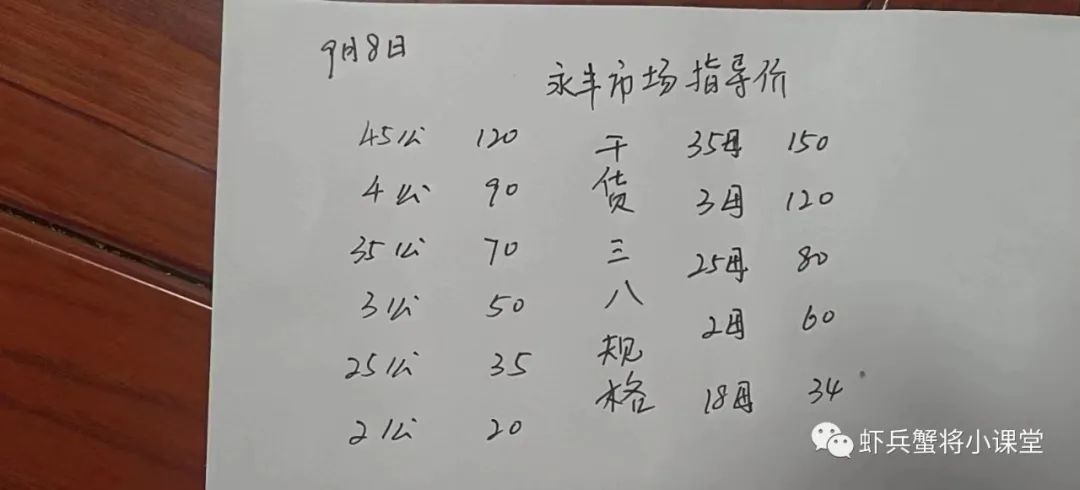 9月8日
永丰市场指导价
45公 120
4公 90
35公 70
3公 50
25公 35
2公 20
干货三八规格
35母 150
3母 120
25母 80
2母 60
18母 34
虾兵蟹将小课堂